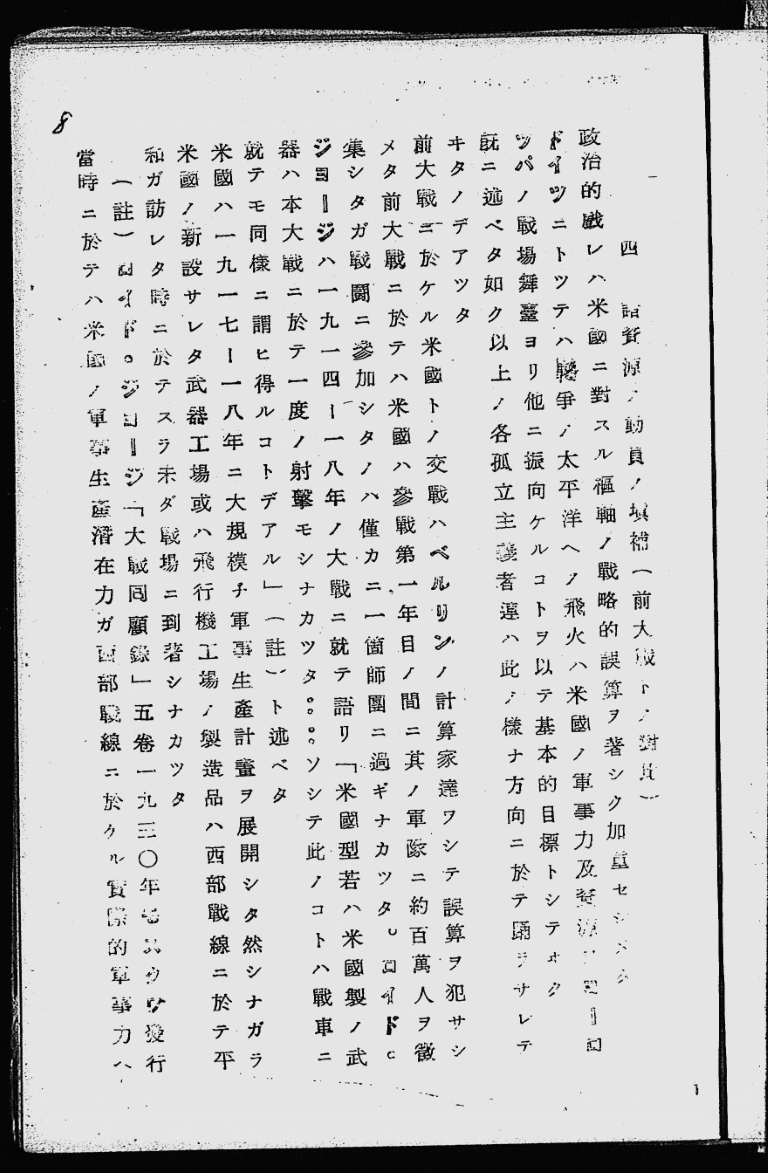 8
四 諸資源ノ動員ノ填補(前大戰トノ對比)
政治的戲レハ米國ニ對スル樞軸ノ戰略的誤算ヲ著シク加重セシメタ
ドイツニトツテハ戰爭ノ太平洋ヘノ飛火ハ米國ノ軍事力及資源ヲヨーロ
ツパノ戰場舞臺ヨリ他ニ振向ケルコトヲ以テ基本的目標トシテヰタ
既ニ述ベタ如ク以上ノ各孤立主義者達ハ此ノ樣ナ方向ニ於テ踊ラサレテ
キタノデアツタ
前大戰ニ於ケル米國トノ交戰ハベルリンノ計算家達ヲシテ誤算ヲ犯サシ
メタ前大戰ニ於テハ米國ハ參戰第一年目ノ間ニ其ノ軍隊ニ約百萬人ヲ徵
集シタガ戰鬪ニ參加シタノハ僅カニ一箇師團ニ過ギナカツタ。ロイド。
ジヨージハ一九一四ー一八年ノ大戰ニ就テ語リ「米國型若ハ米國製ノ武
器ハ本大戰ニ於テ一度ノ射擊モシナカツタ。。。ソシテ此ノコトハ戰車ニ
就テモ同樣ニ謂ヒ得ルコトデアル」(註)ト述ベタ
米國ハ一九一七ー一八年ニ大規模ナ軍事生產計畫ヲ展開シタ然シナガラ
米國ノ新設サレタ武器工場或ハ飛行機工場ノ製造品ハ西部戰線ニ於テ平
和ガ訪レタ時ニ於テスラ未ダ戰場ニ到着シナカツタ
(註)ロイド。ジヨージ「大戰回顧錄」五卷一九三〇年モスクワ發行
當時ニ於テハ米國ノ軍事生產潛在力ガ西部戰線ニ於ケル實際的軍事力ヘ